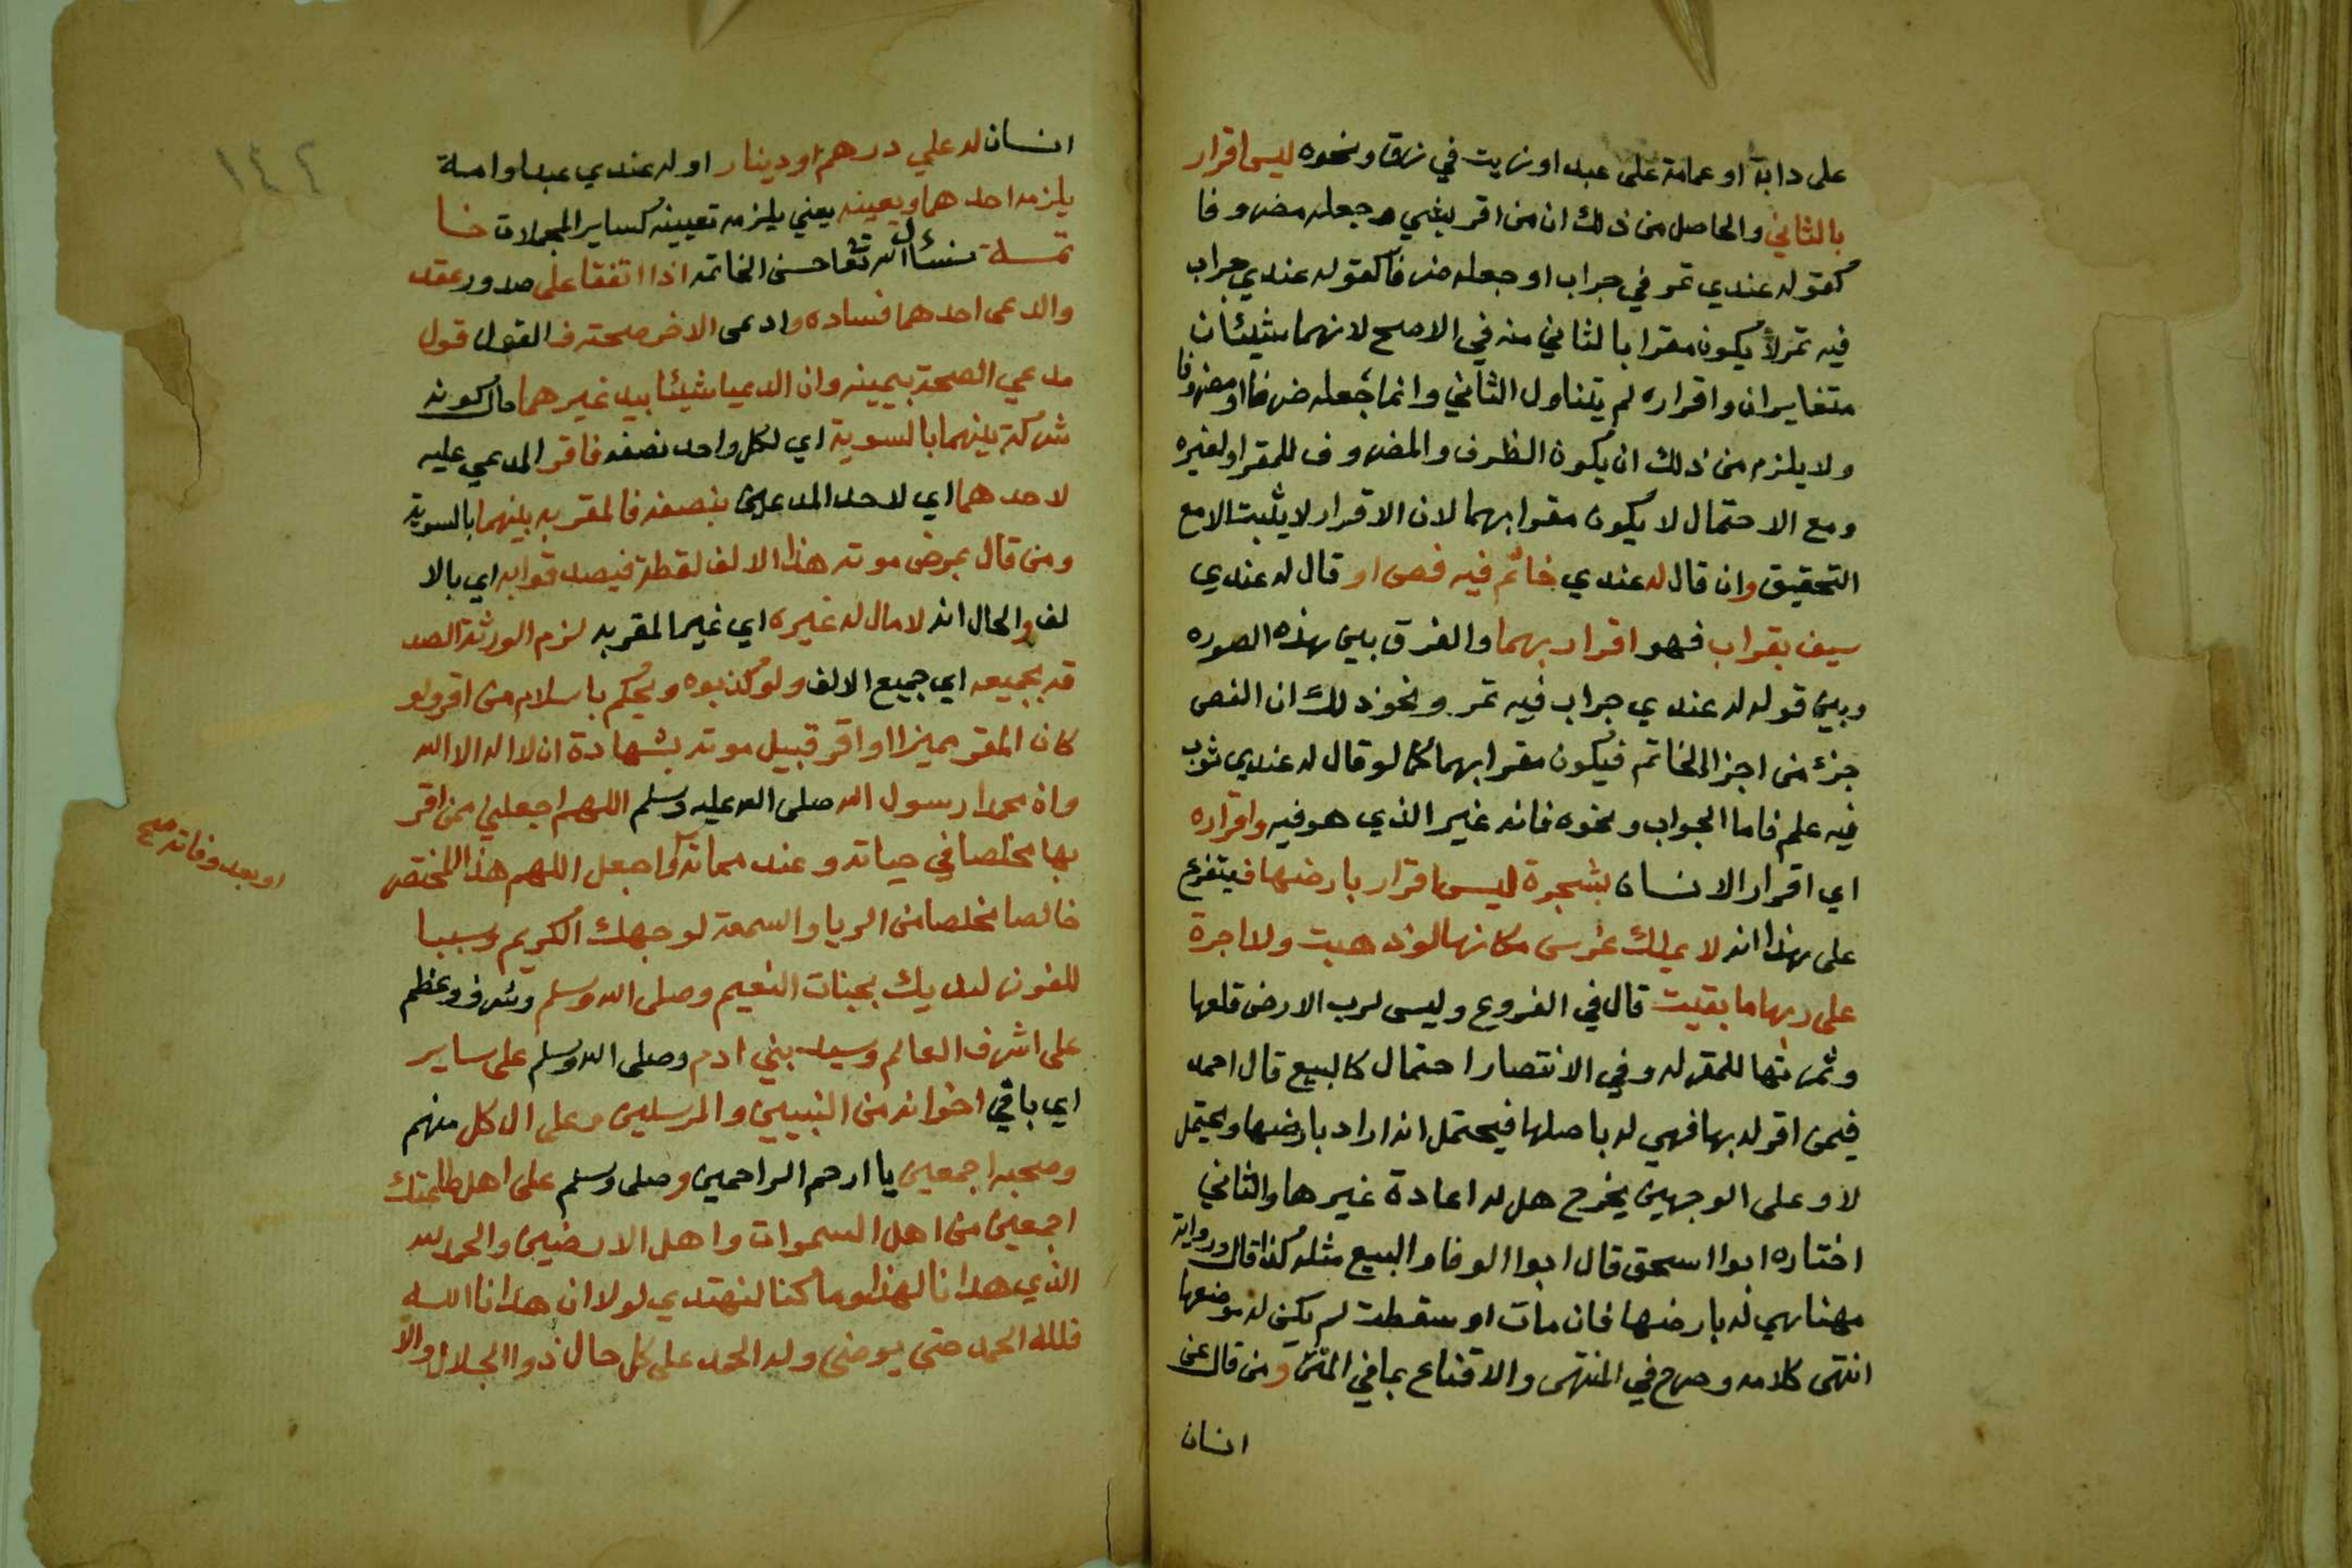 على دابة او عمامة على عبد او زيت في زق ونحوه ليس اقرار
بالثاني والحاصل من ذلك ان من اقر بشي وجعله مضروفا
كقوله عندي تمر في جراب او جعله ضرفا كقوله عندي جراب
فيه تمر لا يكون مقرا بالثاني منه في الاصح لانهما شيئان
متغايران واقراره لم يتناول الثاني وانما جعله ضرفا او مضروفا
ولا يلزم من ذلك ان يكون الظرف والمضروف للمقر او لغيره
ومع الاحتمال لا يكون مقرا بهما لان الاقرار لا يثبت الا مع
التحقيق وان قال له عندي خاتم فيه فص او قال له عندي
سيف بقراب فهو اقرار بهما والفرق بين هذه الصوره
وبين قوله له عندي جراب فيه تمر ونحو ذلك ان الفص
جزء من اجزا الخاتم فيكون مقرا بهما كما لو قال له عندي ثوب
فيه علم فاما الجواب ونحوه فانه غير الذي هو فيه واقراره
اي اقرار الانسان بشجرة ليس اقرار بارضها فيتفرع
على هذا انه لا يملك غرس مكانها لو ذهبت ولا اجرة
على ربها ما بقيت قال في الفروع وليس لرب الارض قلعها
وثمرتها للمقر له وفي الانتصار احتمال كالبيع قال احمد
فيمن اقر له بها فهي له باصلها فيحتمل انه اراد بارضها ويحتمل
لا وعلى الوجهين يخرج هل له اعادة غيرها والثاني
اختاره ابوا اسحق قال ابوا الوفا والبيع مثله كذا قال ورواية
مهنا هي له بارضها فان مات او سقطت لم يكن له موضعها
انتهى كلامه وصرح في المنتهى والاقناع بما في المتن ومن قال عن
انسان
١٤٢
انسان له علي درهم او دينار او له عندي عبد او امة
يلزمه احدهما ويعينه يعني يلزمه تعيينه كساير المجملات خا
تمة نسئال الله تعا حسن الخاتمه اذا اتفقا على صدور عقد
والدعى احدهما فساده وادعى الاخر صحته فالقول قول
مدعي الصحة بيمينه وان الدعيا شيئا بيد غيرهما حال كونه
شركة بينهما بالسوية اي لكل واحد نصفه فاقر المدعي عليه
لاحدهما اي لاحد المدعيين بنصفه فالمقر به بينهما بالسوية
ومن قال بمرض موته هذا الالف لقطة فيصدقوا به اي بالا
لف والحال انه لا مال له غيره اي غير المقر به لزم الورثة الصد
قه بجميعه اي جميع الالف ولو كذبوه ويحكم باسلام من اقر ولو
كان المقر مميزا او اقر قبيل موته بشهادة ان لا اله الا الله
وان محمدا رسول الله صلى الله عليه وسلم اللهم اجعلني ممن اقر
بها مخلصا في حياته وعند مماته واجعل اللهم هذا المختصر
او بعد وفاته صح
خالصا مخلصا من الريا والسمعة لوجهك الكريم وسببا
للفوز لديك بجنات النعيم وصلى الله وسلم وشرف وعظم
على اشرف العالم وسيد بني ادم وصلى الله وسلم على ساير
اي باقي اخوانه من النبيين والمرسلين وعلى ال كل منهم
وصحبه اجمعين يا ارحم الراحمين وصلى وسلم على اهل طاعتك
اجمعين من اهل السموات واهل الارضين والحمد لله
الذي هدانا لهذا وما كنا لنهتدي لولا ان هدانا الله
فلله الحمد حتى يرضى وله الحمد على كل حال ذوا الجلال والا